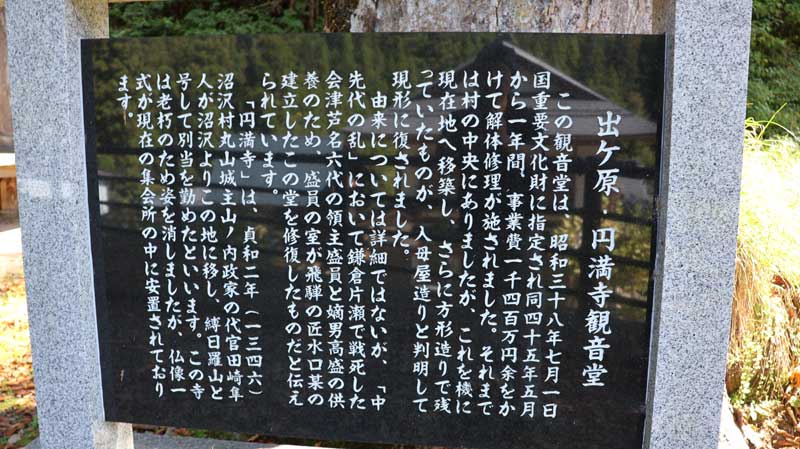 出ケ原・円満寺観音堂
この観音堂は、昭和三十八年七月一日
国重要文化財に指定され同四十五年五月
から一年間、事業費一千四百万円余をか
けて解体修理が施されました。それまで
は村の中央にありましたが、これを機に
現在地へ移築し、さらに方形造りで残
っていたものが、入母屋造りと判明して
現形に復されました。
由来については詳細ではないが、「中
先代の乱」において鎌倉片瀬で戦死した
会津芦名六代の領主盛員と嫡男高盛の供
養のため、盛員の室が飛騨の匠水口某の
建立したこの堂を修復したものだと伝え
られています。
「円満寺」は、貞和二年(一三四六)
沼沢村丸山城主山ノ内政家の代官田崎隼
人が沼沢よりこの地に移し、縛日羅山と
号して別当を勤めたといいます。この寺
は老朽のため姿を消しましたが、仏像一
式が現在の集会所の中に安置されており
ます。